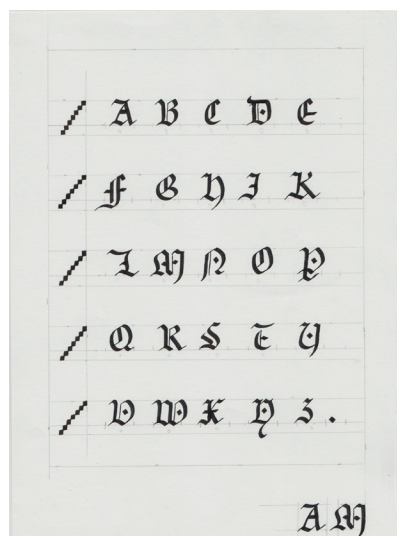 A B C D E
F G H I K
L M N O P
Q R S T U
V W X Y Z .
A M